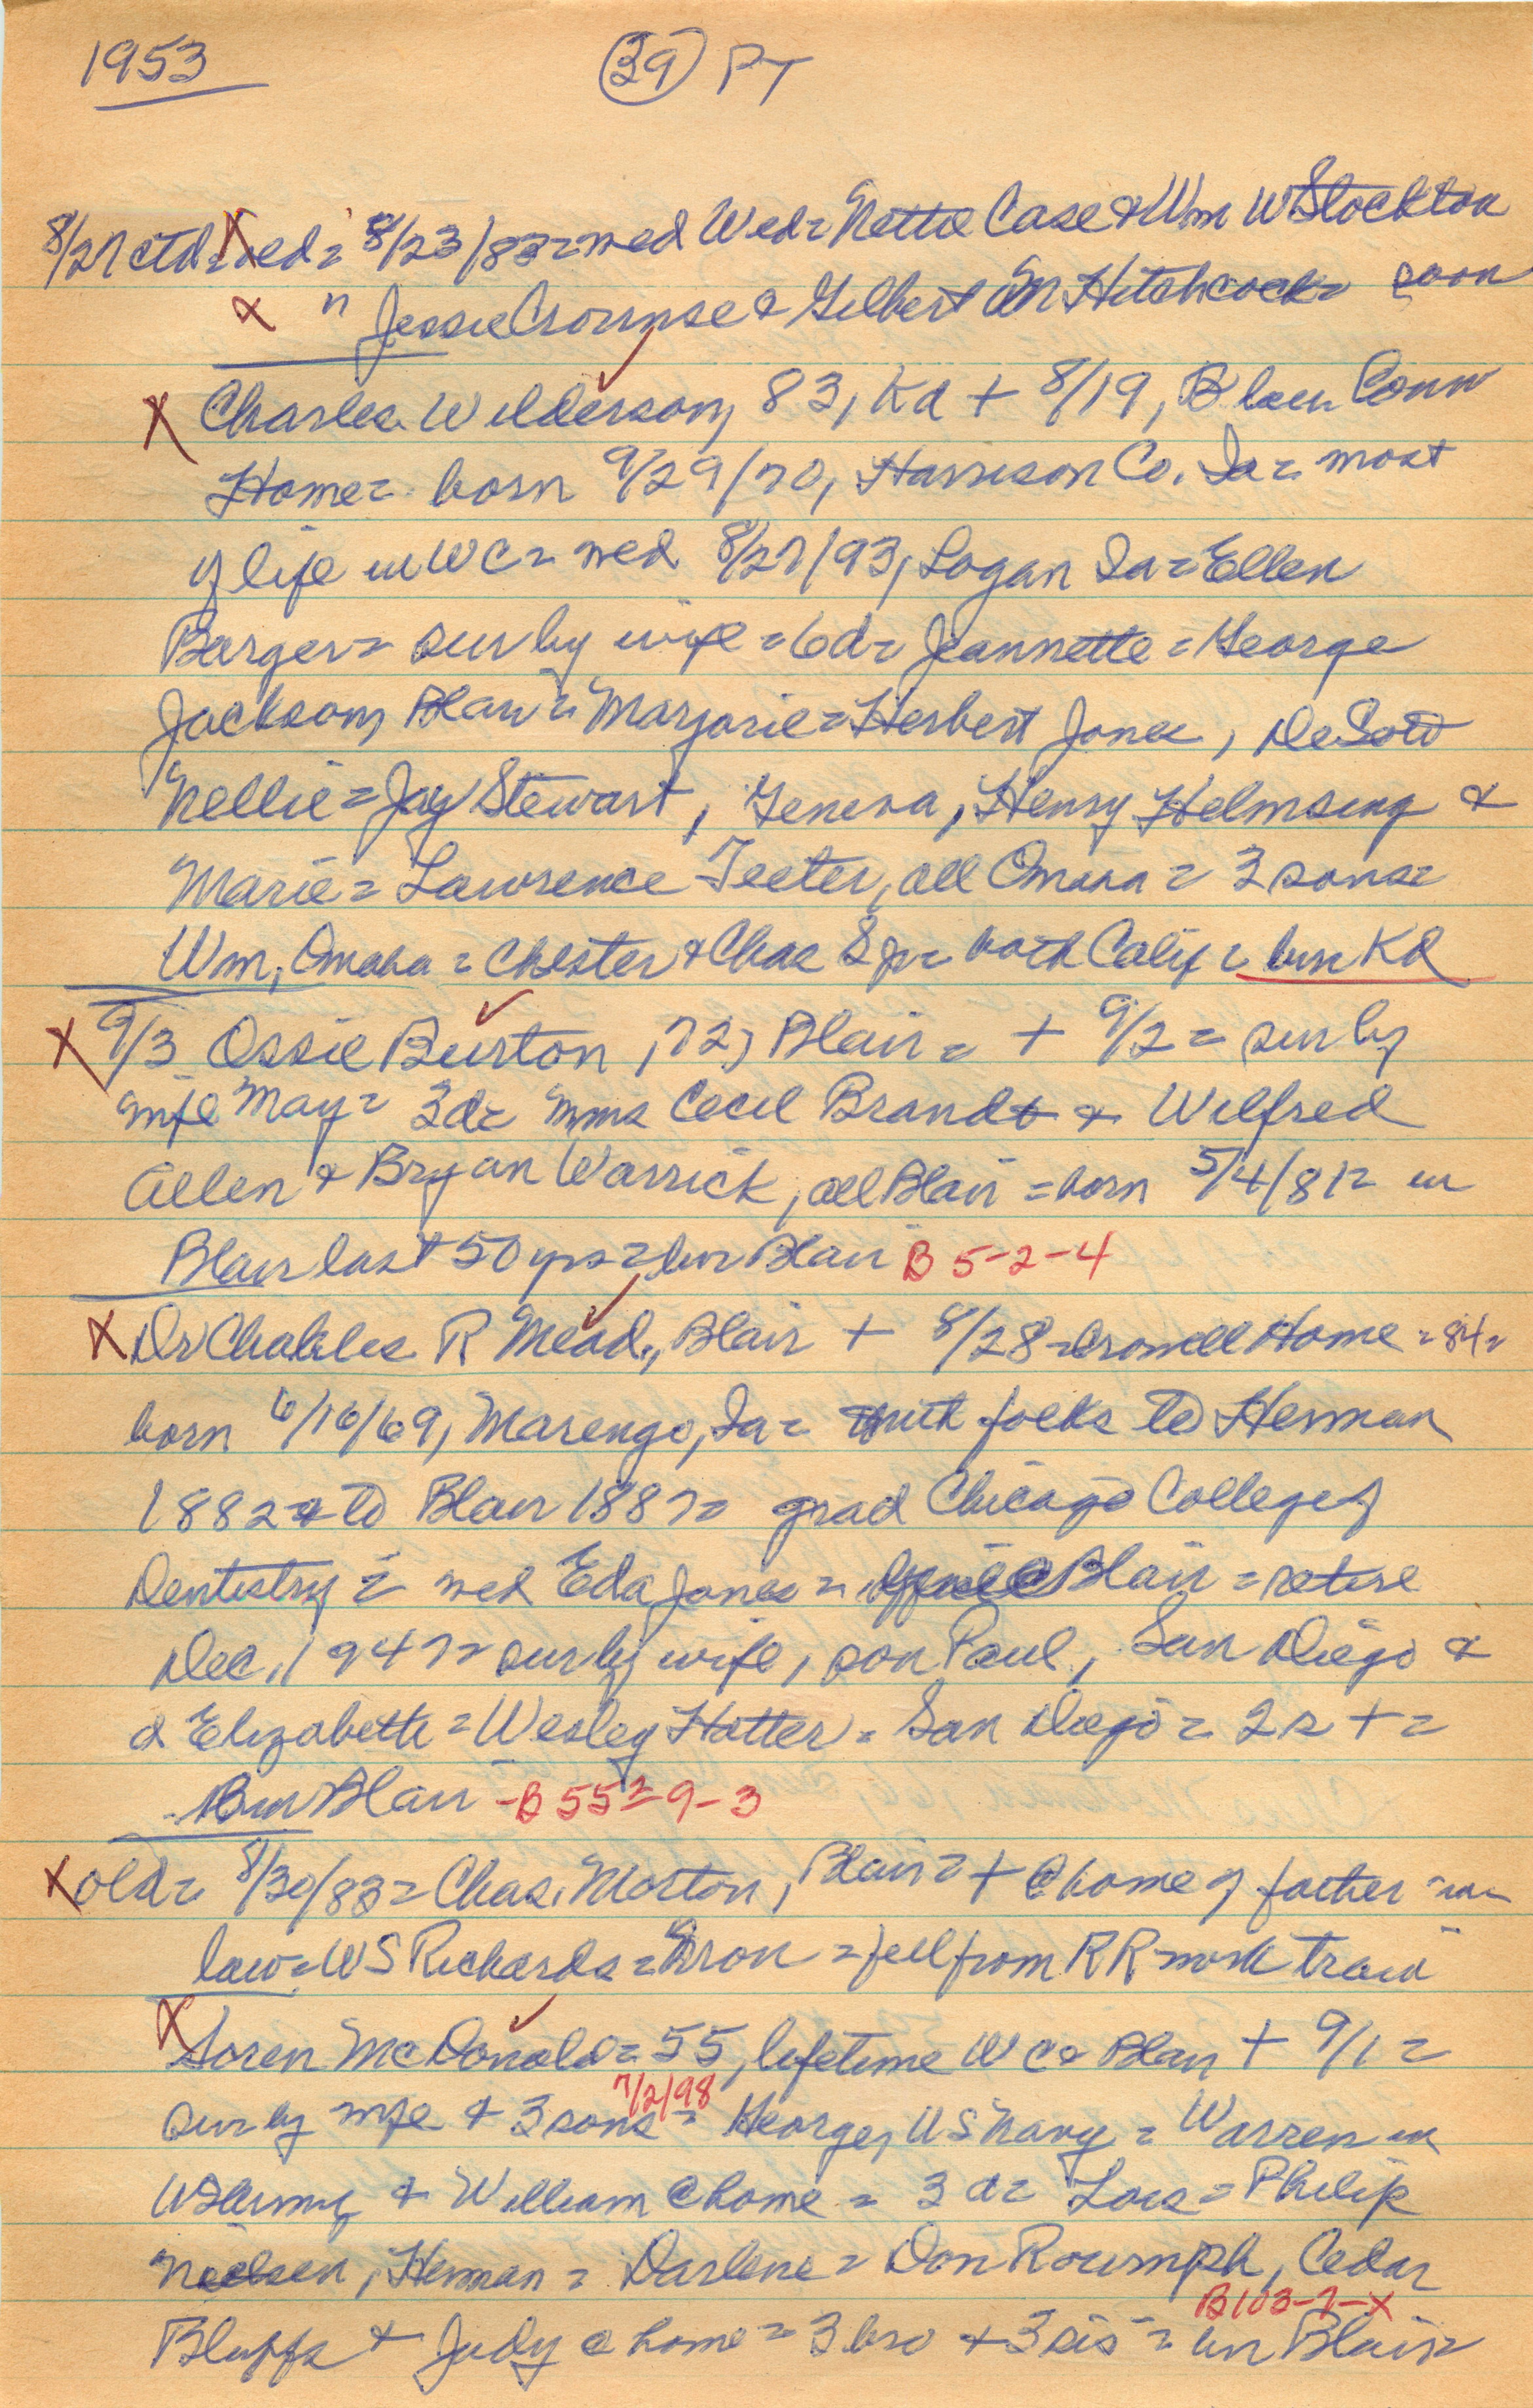 1953
39 PT
8/27 ctd = old = 8/23/83 = med Wed = Nettie Case & Wm W Stockton
x " Jessie Crounse & Gilbert M Hitchcock = soon
x Charles Wilderson, 83, Kd + 8/19, Blair Conv
Home = born 9/29/70, Harrison Co. Ia = most
of life in WC = med 8/27/93, Logan Ia = Ellen
Barger = sur by wife = 6d = Jeannette = George
Jackson, Blair = Marjorie = Herbert Jones, DeSoto
Nellie = Jay Stewart, Geneva, Henry Helmsing &
Marie = Lawrence Teeter, all Omaha = 3 sons =
Wm, Omaha = Chester & Chas S Jr = both Calif = bur Kd
x 9/3 Ossie Burton, 72, Blair = + 9/2 = sur by
wife May = 3d = Mmes Cecil Brandt & Wilfred
Allen & Bryan Warrick, all Blair = born 5/4/81 = in
Blair last 50 yrs = bur Blair B 5-2-4
x Dr Charles R Mead, Blair + 8/28 = Crowell Home = 84 =
born 6/16/69, Marengo, Ia = with folks to Herman
1882 & to Blair 1887 = grad Chicago College of
Dentistry = med Eda Jones = office @ Blair = retire
Dec. 1947 = sur by wife, son Paul, San Diego &
d Elizabeth = Wesley Hatter = San Diego = 2s + =
Bur Blair - B 55-9-3
x old = 8/30/83 = Chas. Morton, Blair = + @ home of father in
law = WS Richards = = fell from RR work train
x Loren McDonald = 55, lifetime WC & Blair + 9/1 =
7/2/98
sur by wife & 3 sons = George, US Navy = Warren in
US Army & William @ home = 3 d = Lois = Philip
Nielsen, Herman = Darlene = Don Roumph, Cedar
B103-7-X
Bluffs & Judy @ home = 3 bro & 3 sis = bur Blair =